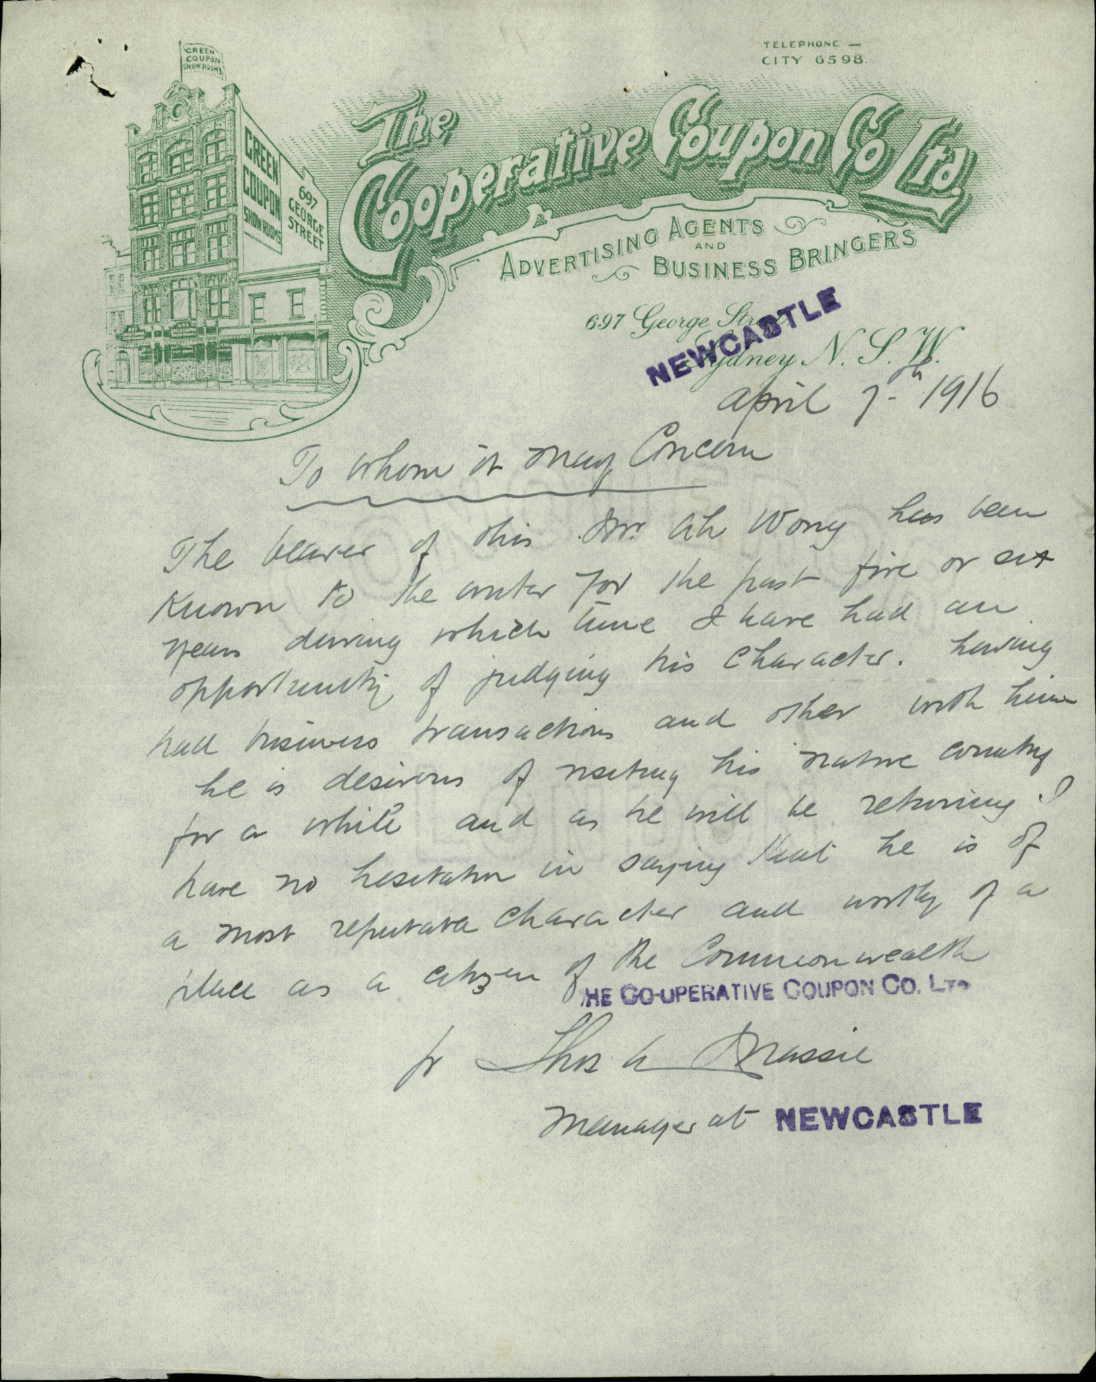 GREEN
COUPON
SHOWROOMS
TELEPHONE —
CITY 6598.
GREEN
COUPON
SHOW ROOMS
697
GEORGE
STREET
The
Cooperative Coupon Co Ltd.
ADVERTISING AGENTS
AND
BUSINESS BRINGERS
697 George Street
NEWCASTLE
Sydney N. S. W.
April 7th 1916
To whom it may Concern
The bearer of this Mr. Ah Wong has been
Known to the writer for the past five or six
years during which time I have had an
opportunity of judging his character. having
had business transactions and other with him
he is desirous of visiting his native country
for a while and as he will be returning I
have no hesitation in saying that he is of
a most reputable character and worthy of a
place as a citizen of the Commonwealth
THE CO-OPERATIVE COUPON CO. LTD
pr Thos A Massie
Manager at NEWCASTLE
LONDON